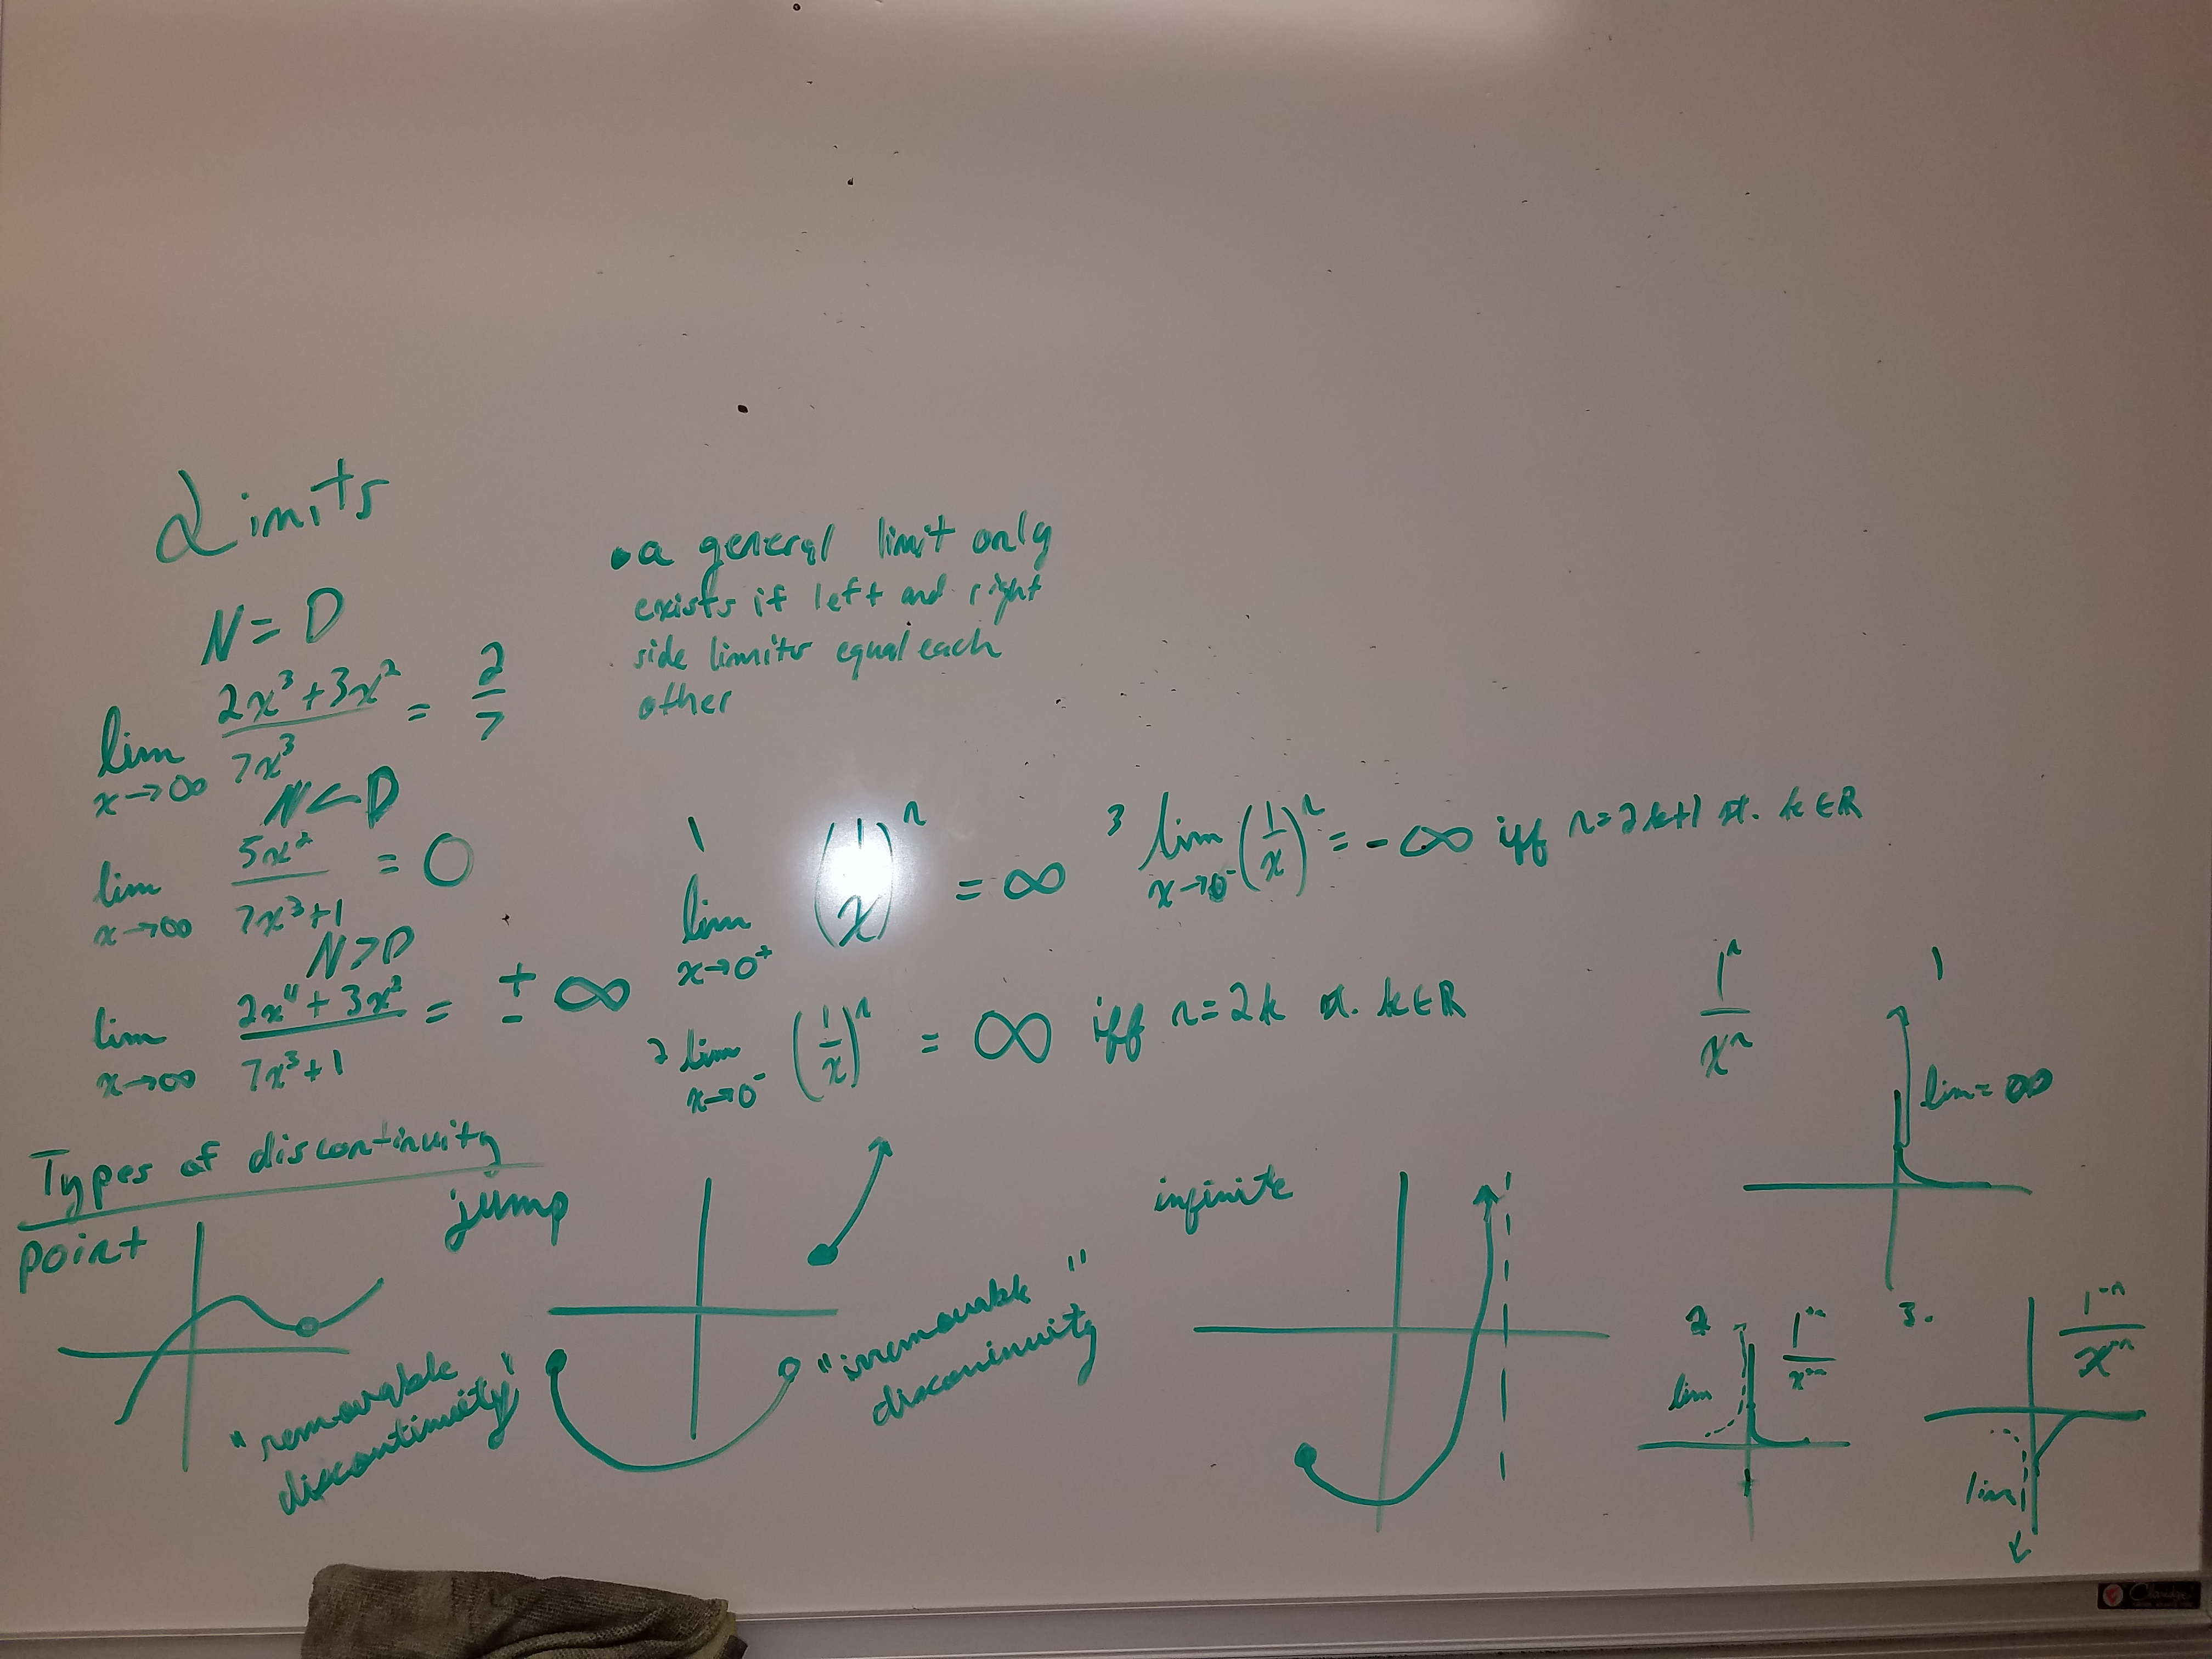 Limits
N = D
lim x→∞ (2x³+3x²)/(7x³) = 2/7
N < D
lim x→∞ (5x²)/(7x³+1) = 0
N > D
lim x→∞ (2x⁴+3x²)/(7x³+1) = ± ∞
• a general limit only
exists if left and right
side limits equal each
other
1 lim x→0⁺ (1/x)ⁿ = ∞
3 lim x→0⁻ (1/x)ⁿ = -∞ iff n=2k+1 st. k∈R
2 lim x→0⁻ (1/x)ⁿ = ∞ iff n=2k st. k∈R
Types of discontinuity
point
"removable
discontinuity"
jump
"irremovable"
disconinuity
infinite
1ⁿ/xⁿ
1
lim = ∞
2
lim
3.
lim